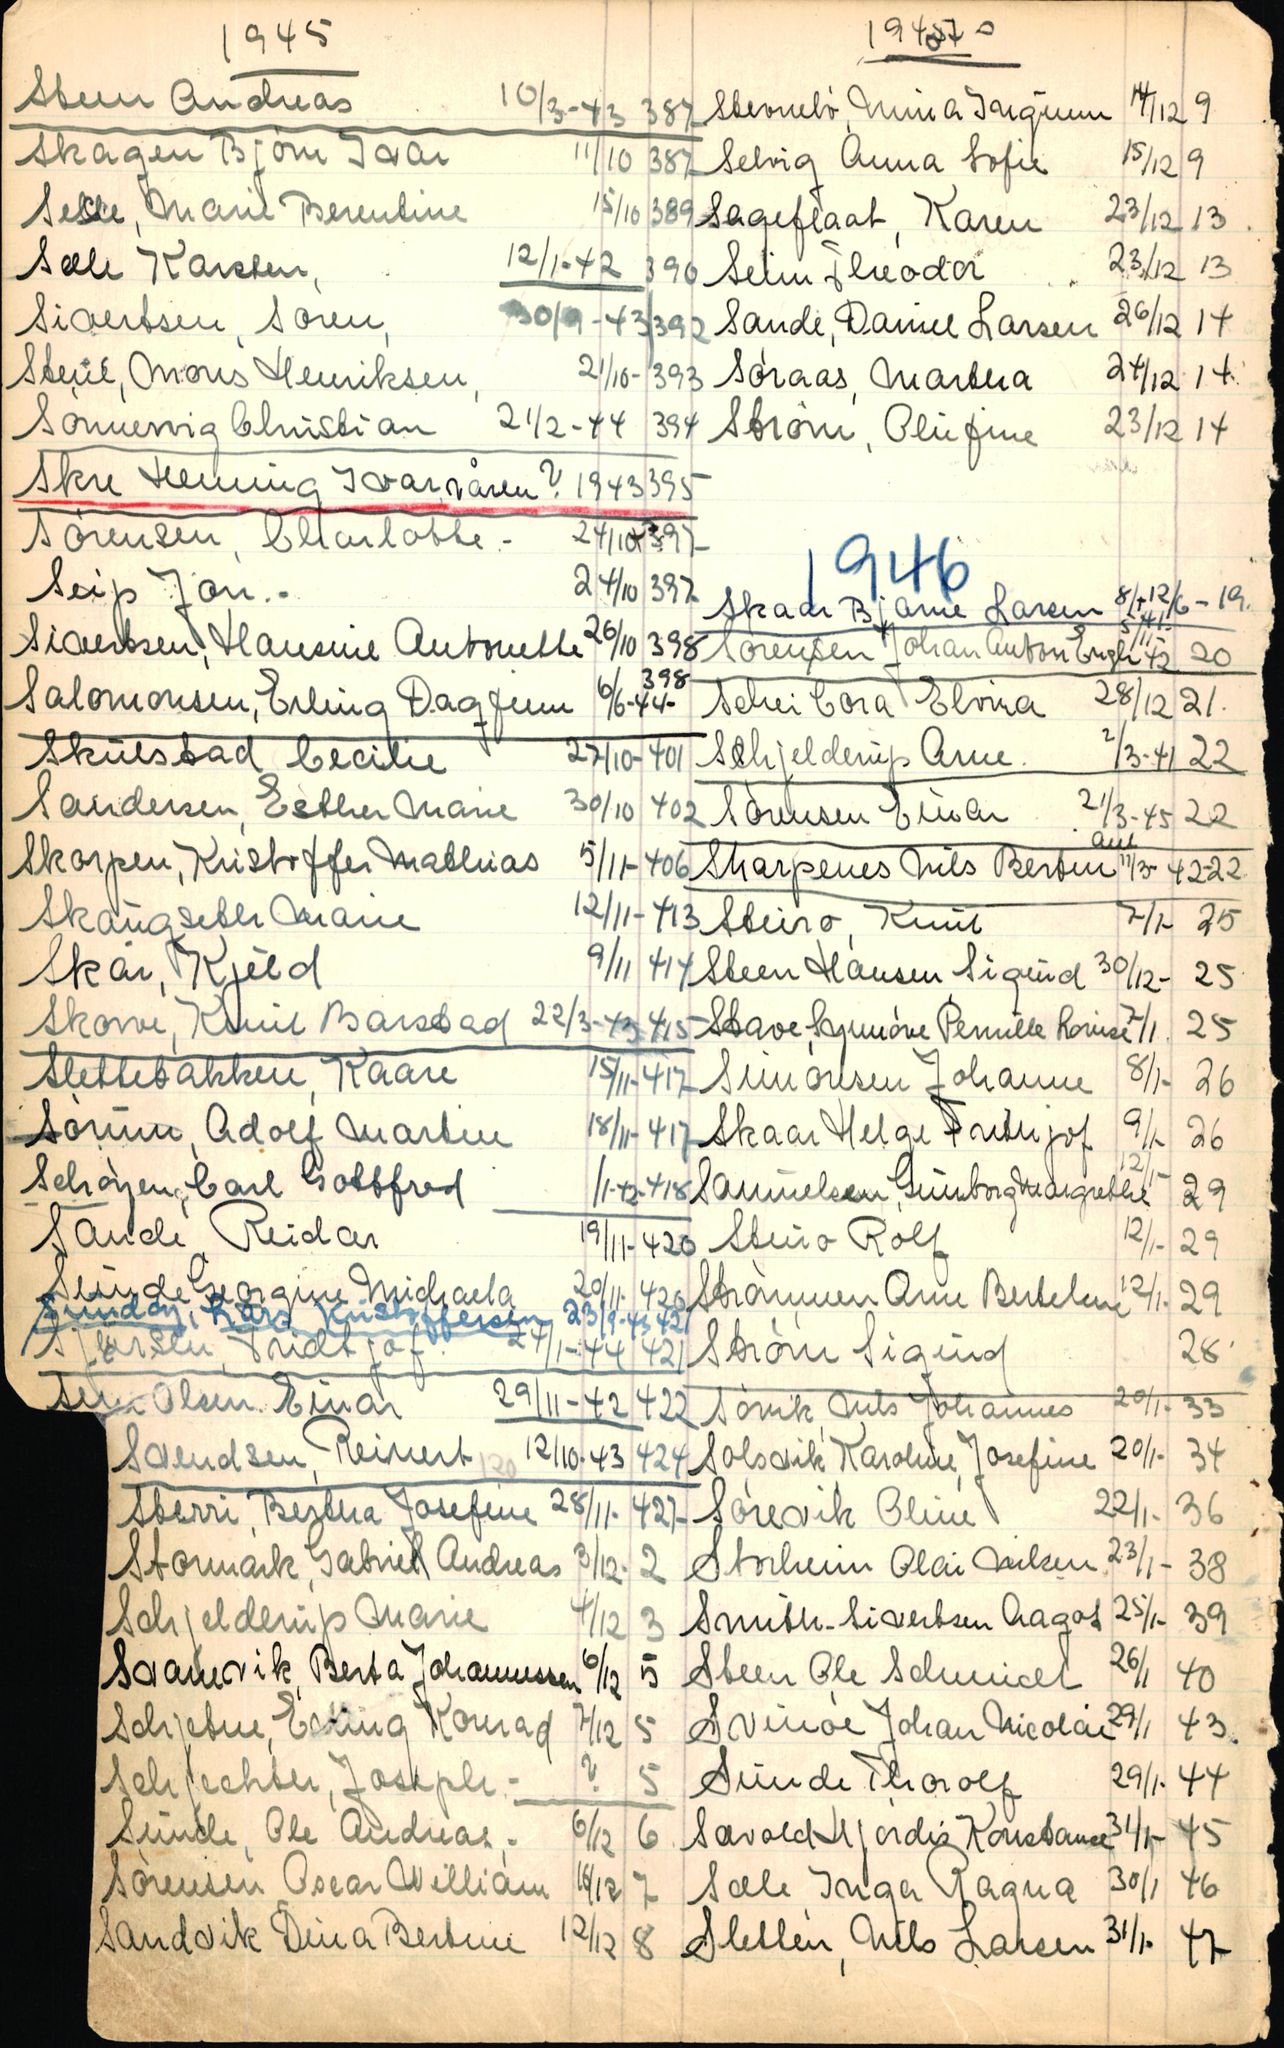 1945
Steen Andreas 10/3-43 387
Skagen Björn Ivar 11/10 387
Selle, Marie Berentine 15/10 389
Sæle Karsten, 12/1-42 390
Sivertsen, Sören, 30/9-43 392
Mons Henriksen, 21/10- 393
Sönnervig Christian 21/2-44 394
Skre Henning Ivar, våren? 1943 395
Sörensen, Charlotte - 24/10 397
Seip Jon.- 24/10 397
Sivertsen, Hansine Antonette 26/10 398
Salomonsen, Erling Dagfinn 6/6-44- 398
Skulstad Cecilie 27/10- 401
Sandersen, Esther Marie 30/10 402
Skorpen, Kristoffer Mathias 5/11- 406
Skaugseth Marie 12/11- 413
Skår, Kjell 9/11 414
Skovve, Knut Barstad 22/3-43 415
Slettebakken, Kaare 15/11- 417
Sörum, Adolf Martin 18/11- 417
Schöyen, Carl Gottfred 1/1-42- 418
Sande, Reidar 19/11- 420
Sunde Georgine Michaela 20/11- 420
Sunday, Lars Kristoffersen 23/9-43 421
Fridtjof 24/1-44 421
Olsen Einar 29/11-42 422
Svendsen, Reinert 12/10-43 424
Sterri, Bertha Josefine 28/11- 427
Stormark, Gabriel Andreas 3/12- 2
Schjelderup Marie 4/12 3
Svanevik, Berta Johannessen 6/12 5
Schjetne, Erling Konrad 7/12 5
Schjechter, Joseph - ? 5
Sunde, Ole Andreas, 6/12 6
Sörensen Oscar William 10/12 7
Sandvik Dina Bertine 12/12 8
1945
Mina Ingunn 14/12 9
Selvig Anna Sofie 15/12 9
Sageflaat, Karen 23/12 13
Seim Theodor 23/12 13
Sande, Daniel Larsen 26/12 14
Söraas, Martha 24/12 14
Ström, Olufine 23/12 14
1946
Skaar Bjarne Larsen 19.
Sörensen Johan Anton Engh 5/11-42 20
Schei Cora Elvira 28/12 21.
Schjelderup Arne. 2/3-41 22
Sörensen Einar 21/3-45 22
Skarpenes Nils Bertin 11/3-42-22
Steiro, Knut 7/1- 25
Steen Hansen, Sigurd 30/12- 25
Stave, Synnöve Pernille Lovise 7/1 25
Simonsen Johanne 8/1- 26
Skaar Helge Frithjof 9/1- 26
Samuelsen, Gunborg Margrethe 12/1- 29
Steiro Rolf 12/1- 29
Strömmen Arne Bertelsen 12/1- 29
Ström Sigurd 28
Sörvik, Nils Johannes 20/1- 33
Solsvik Karoline, Josefine 20/1- 34
Sörevik Oline 22/1- 36
Storheim Olai Nilsen 23/1- 38
Smith-Sivertsen Aagot 25/1- 39
Steen Ole Schmidt 26/1 40
Svinöe Johan Nicolai 29/1 43.
Sunde Thorolf 29/1- 44
Sævold Hjördis Konstanse 31/1- 45
Sæle Inga Ragna 30/1 46
Sletten, Nils Larsen 31/1- 47